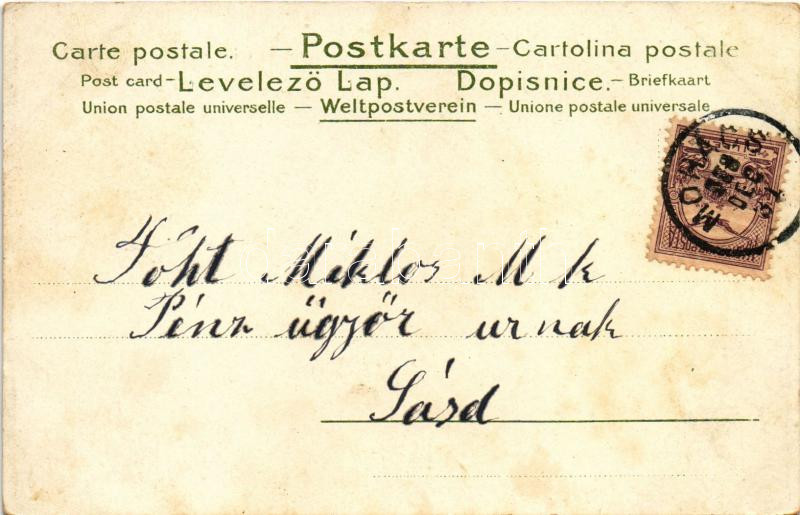 Carte postale. — Postkarte — Cartolina postale
Post card — Levelezö Lap. Dopisnice. — Briefkaart
Union postale universelle — Weltpostverein — Unione postale universale
MOHÁCS
DEC 31
Föht Miklos M k
Pénz ügyőr urnak
Sásd